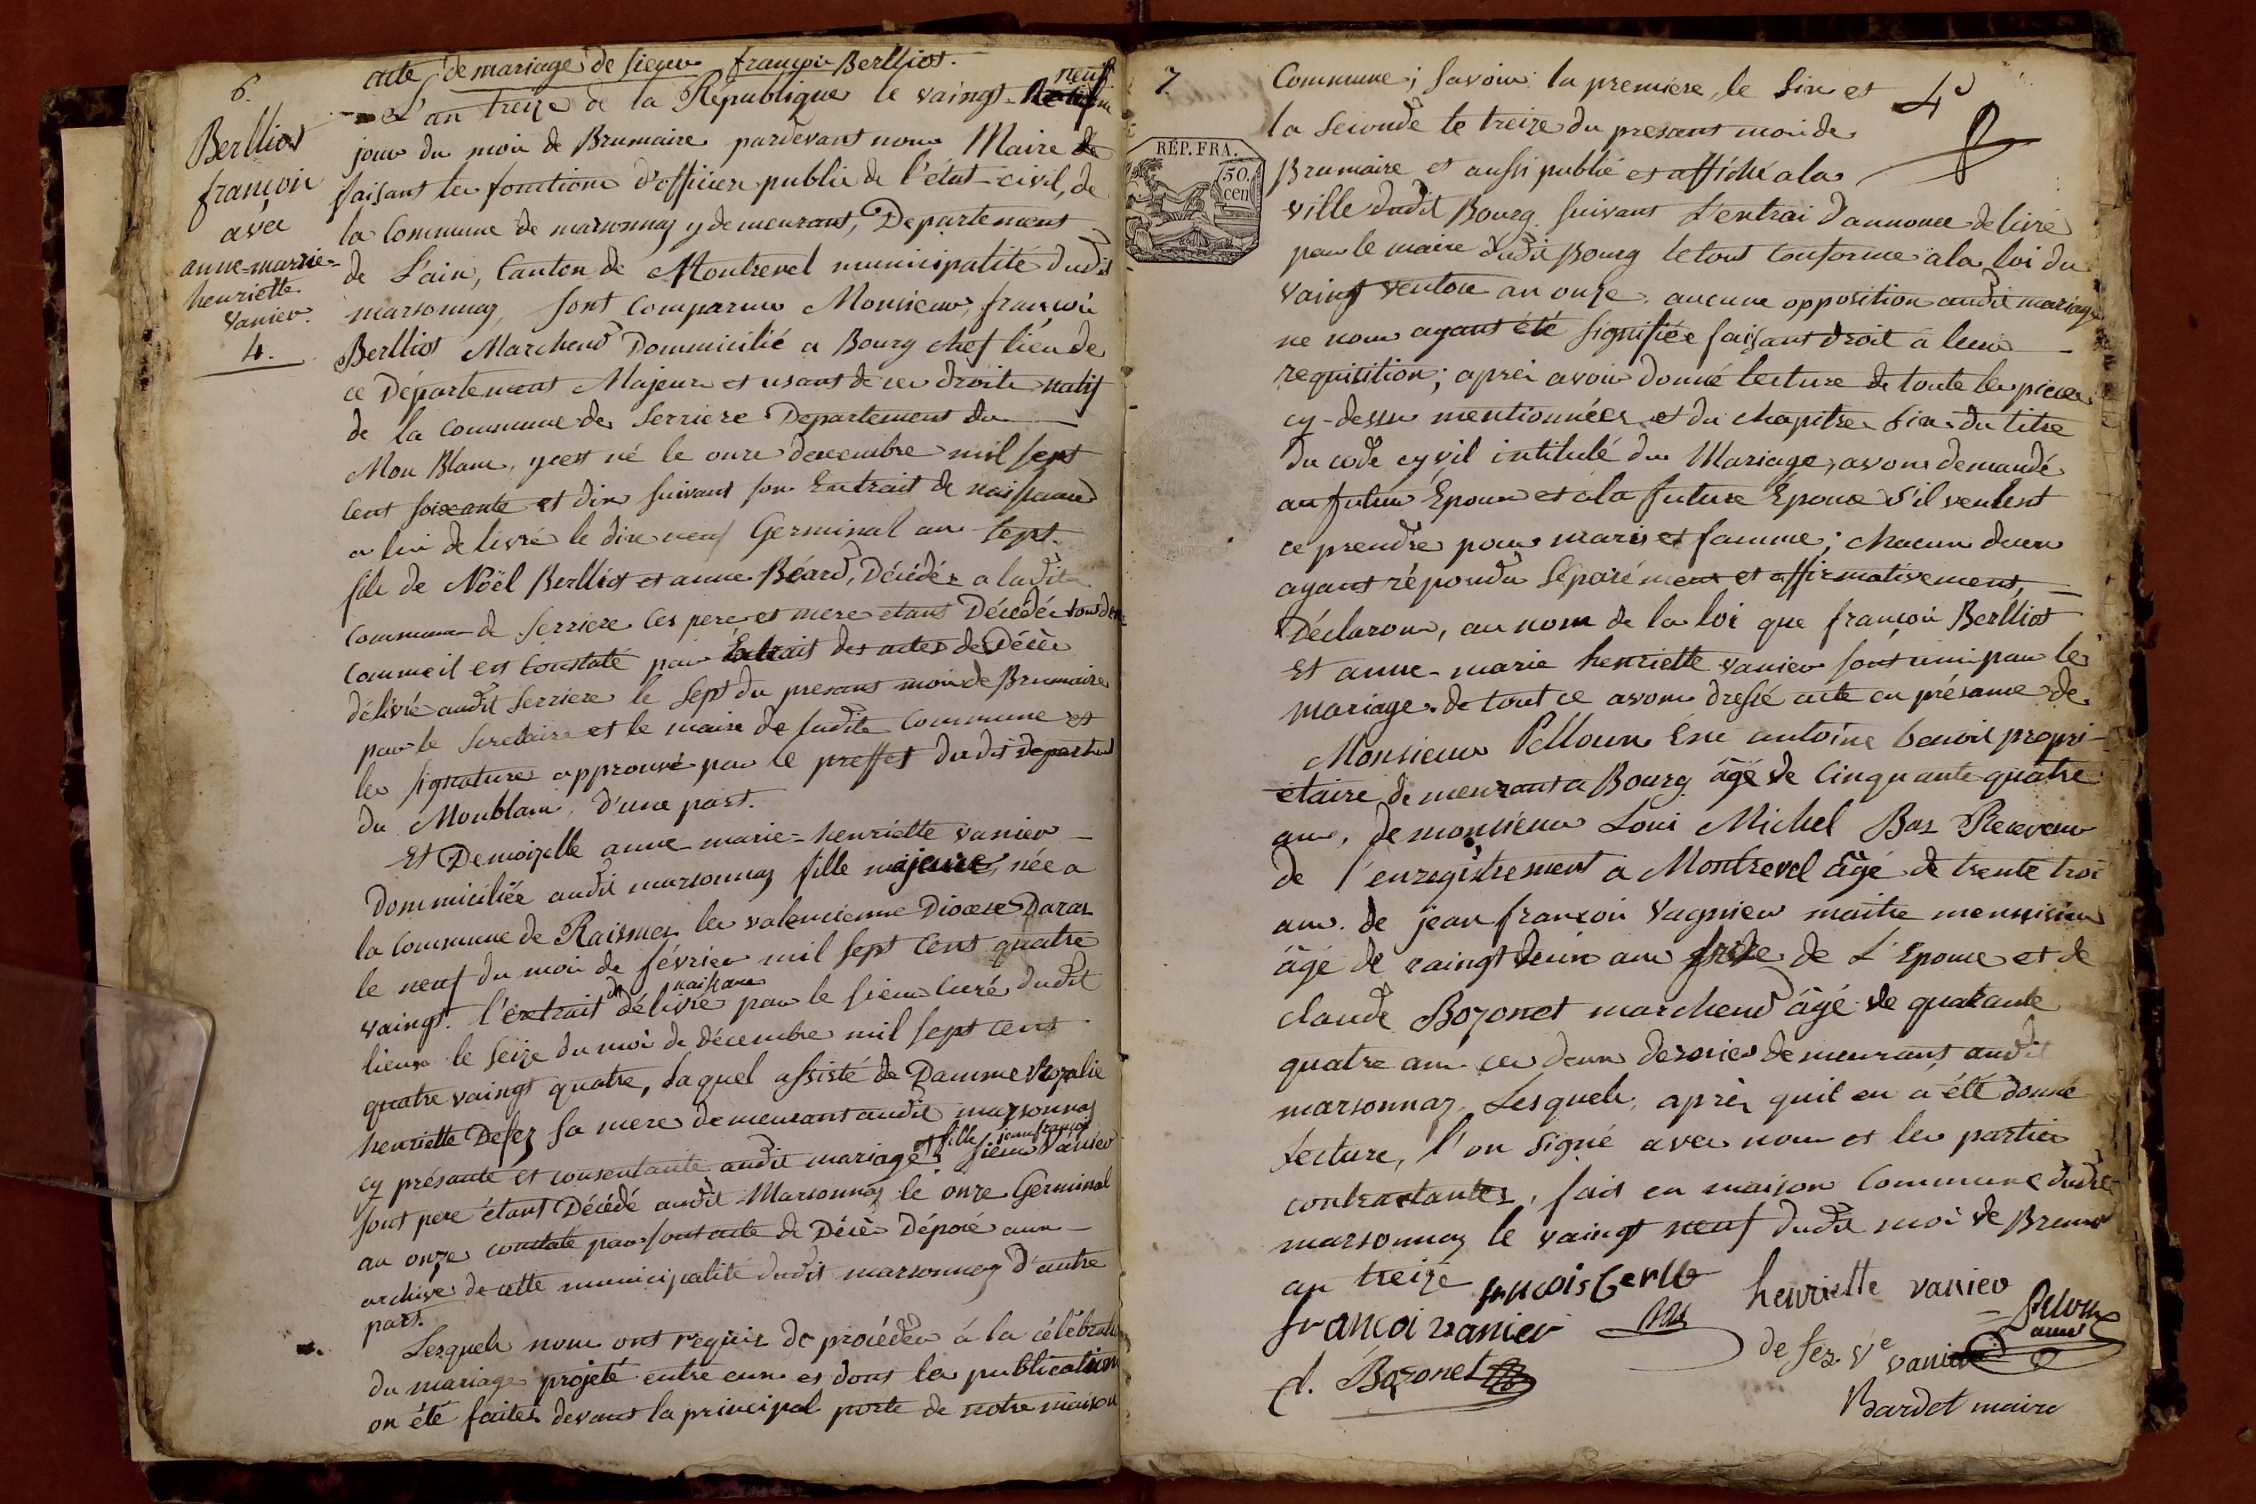 6.
Berlliot
françois
avec
anne-marie=
henriette
vanier.
4.
acte de mariage de sieur françois Berlliot.
L'an treize de la République le vaingt-neuf
jour du moi de Brumaire pardevant nous Maire
faisant les fonctions d'officier public de l'état-civil, de
la Commune de marsonnaz y demeurant, Departement
de L'ain, Canton de Montrevel municipalité dudit
marsonnaz, sont comparus Monsieur, françois
Berlliot Marchend Dommicilié a Bourg chef lieu de
ce Département Majeur et usant de ces droits natif
de la commune de Serriere Departement du
Mon Blanc, y est né le onze decembre mil sept
Cent soixante et dix suivant son Extrait de naissance
a lui delivré le dix neuf Germinal an sept.
fils de Noël Berlliot et anne Béard, Décédés a ladite
commune de Serriere Ces pere et mere etant Décédés tous deux
comme il est constaté par Extrait des actes de Décès
délivré audit Serriere le sept du presant mois de Brumaire
par le Secretaire et le maire de sudite Commune et
les signatures approuvé par le preffet dudit departe
du Monblanc, d'une part.
Et Demoizelle anne marie=henriette vanier
Dommiciliée audit marsonnaz fille majeure, née a
la Commune de Raismes les valencienne Diocese Daras
le neuf du moi de février mil sept cent quatre
vaingt. l'extrait de naissance délivré par le sieur Curé dudit
lieux le seize du moi de décembre mil sept cent
quatre vaingt quatre, Laquel assisté de Damme Rozalie
henriette Defez sa mere demeurant audit marsonnaz
cy présante et consentante audit mariage, et fille sieur jean françois Vanier
sont pere étant Décédé audit Marsonnaz le onze Germinal
an onze constaté par sont acte de Décès Déposé aux
archives de cette municipalité dudit marsonnaz d'autre
part.
Lesquels nous ont requis de procéder à la célébrati
du mariage projeté entre eux et dont les publication
on été faites devant la principal porte de notre maison
7
4e
RÉP. FRA.
50.
cen
Commune; savoir: la premiére, le six et
la seconde le treize du presant moi de
Brumaire et aussi publié et affiché a la
ville dudit Bourg suivant L'extrai d'annonce delivré
par le maire dudit Bourg le tout conforme à la loi du
vaingt ventose an onze, aucune opposition audit mariage
ne nous ayant été signifiée faisant droit à leur
requisition; aprés avoir donné lecture de toute les pieces
cy-dessu mentionnées et du chapitre six du titre
du code cyvil intitulé du Mariage, avons demandé
au futur Epoux et à la future Epouse s'il veulent
ce prendre pour maris et famme; chacun deux
ayant répondu séparément et affirmativement,
Déclarons, au nom de la loi que françois Berlliot
Et anne-marie henriette vanier sont uni par le
mariage. de tout ce avons dressé acte en présance de
Monsieur Pelloux Ené antoine benoit propri-
étaire demeurant a Bourg âgé de Cinquante quatre
ans, de monsieur Loui Michel Bas Receveur
de l'enregistrement a Montrevel âgé de trente troi
ans. de jean françois Vagnier maitre mennisier
âgé de vaingt deux ans frere de L'Epouse et de
claude Bozonet marchend âgé de quarante
quatre ans ces deux dernier demeurant, audit
marsonnaz, Lesquels, après quil en a été donné
lecture, l'on signé avec nous et les partier
contractantes, fait en maison Commune dudit
marsonnaz le vaingt neuf dudit moi de Brum
an treize
françois berllo
henriette vanier
françoi vanier
Bas
Pelloux
ainé
de fez. Ve vanier
C. Bozonet
Bardet maire